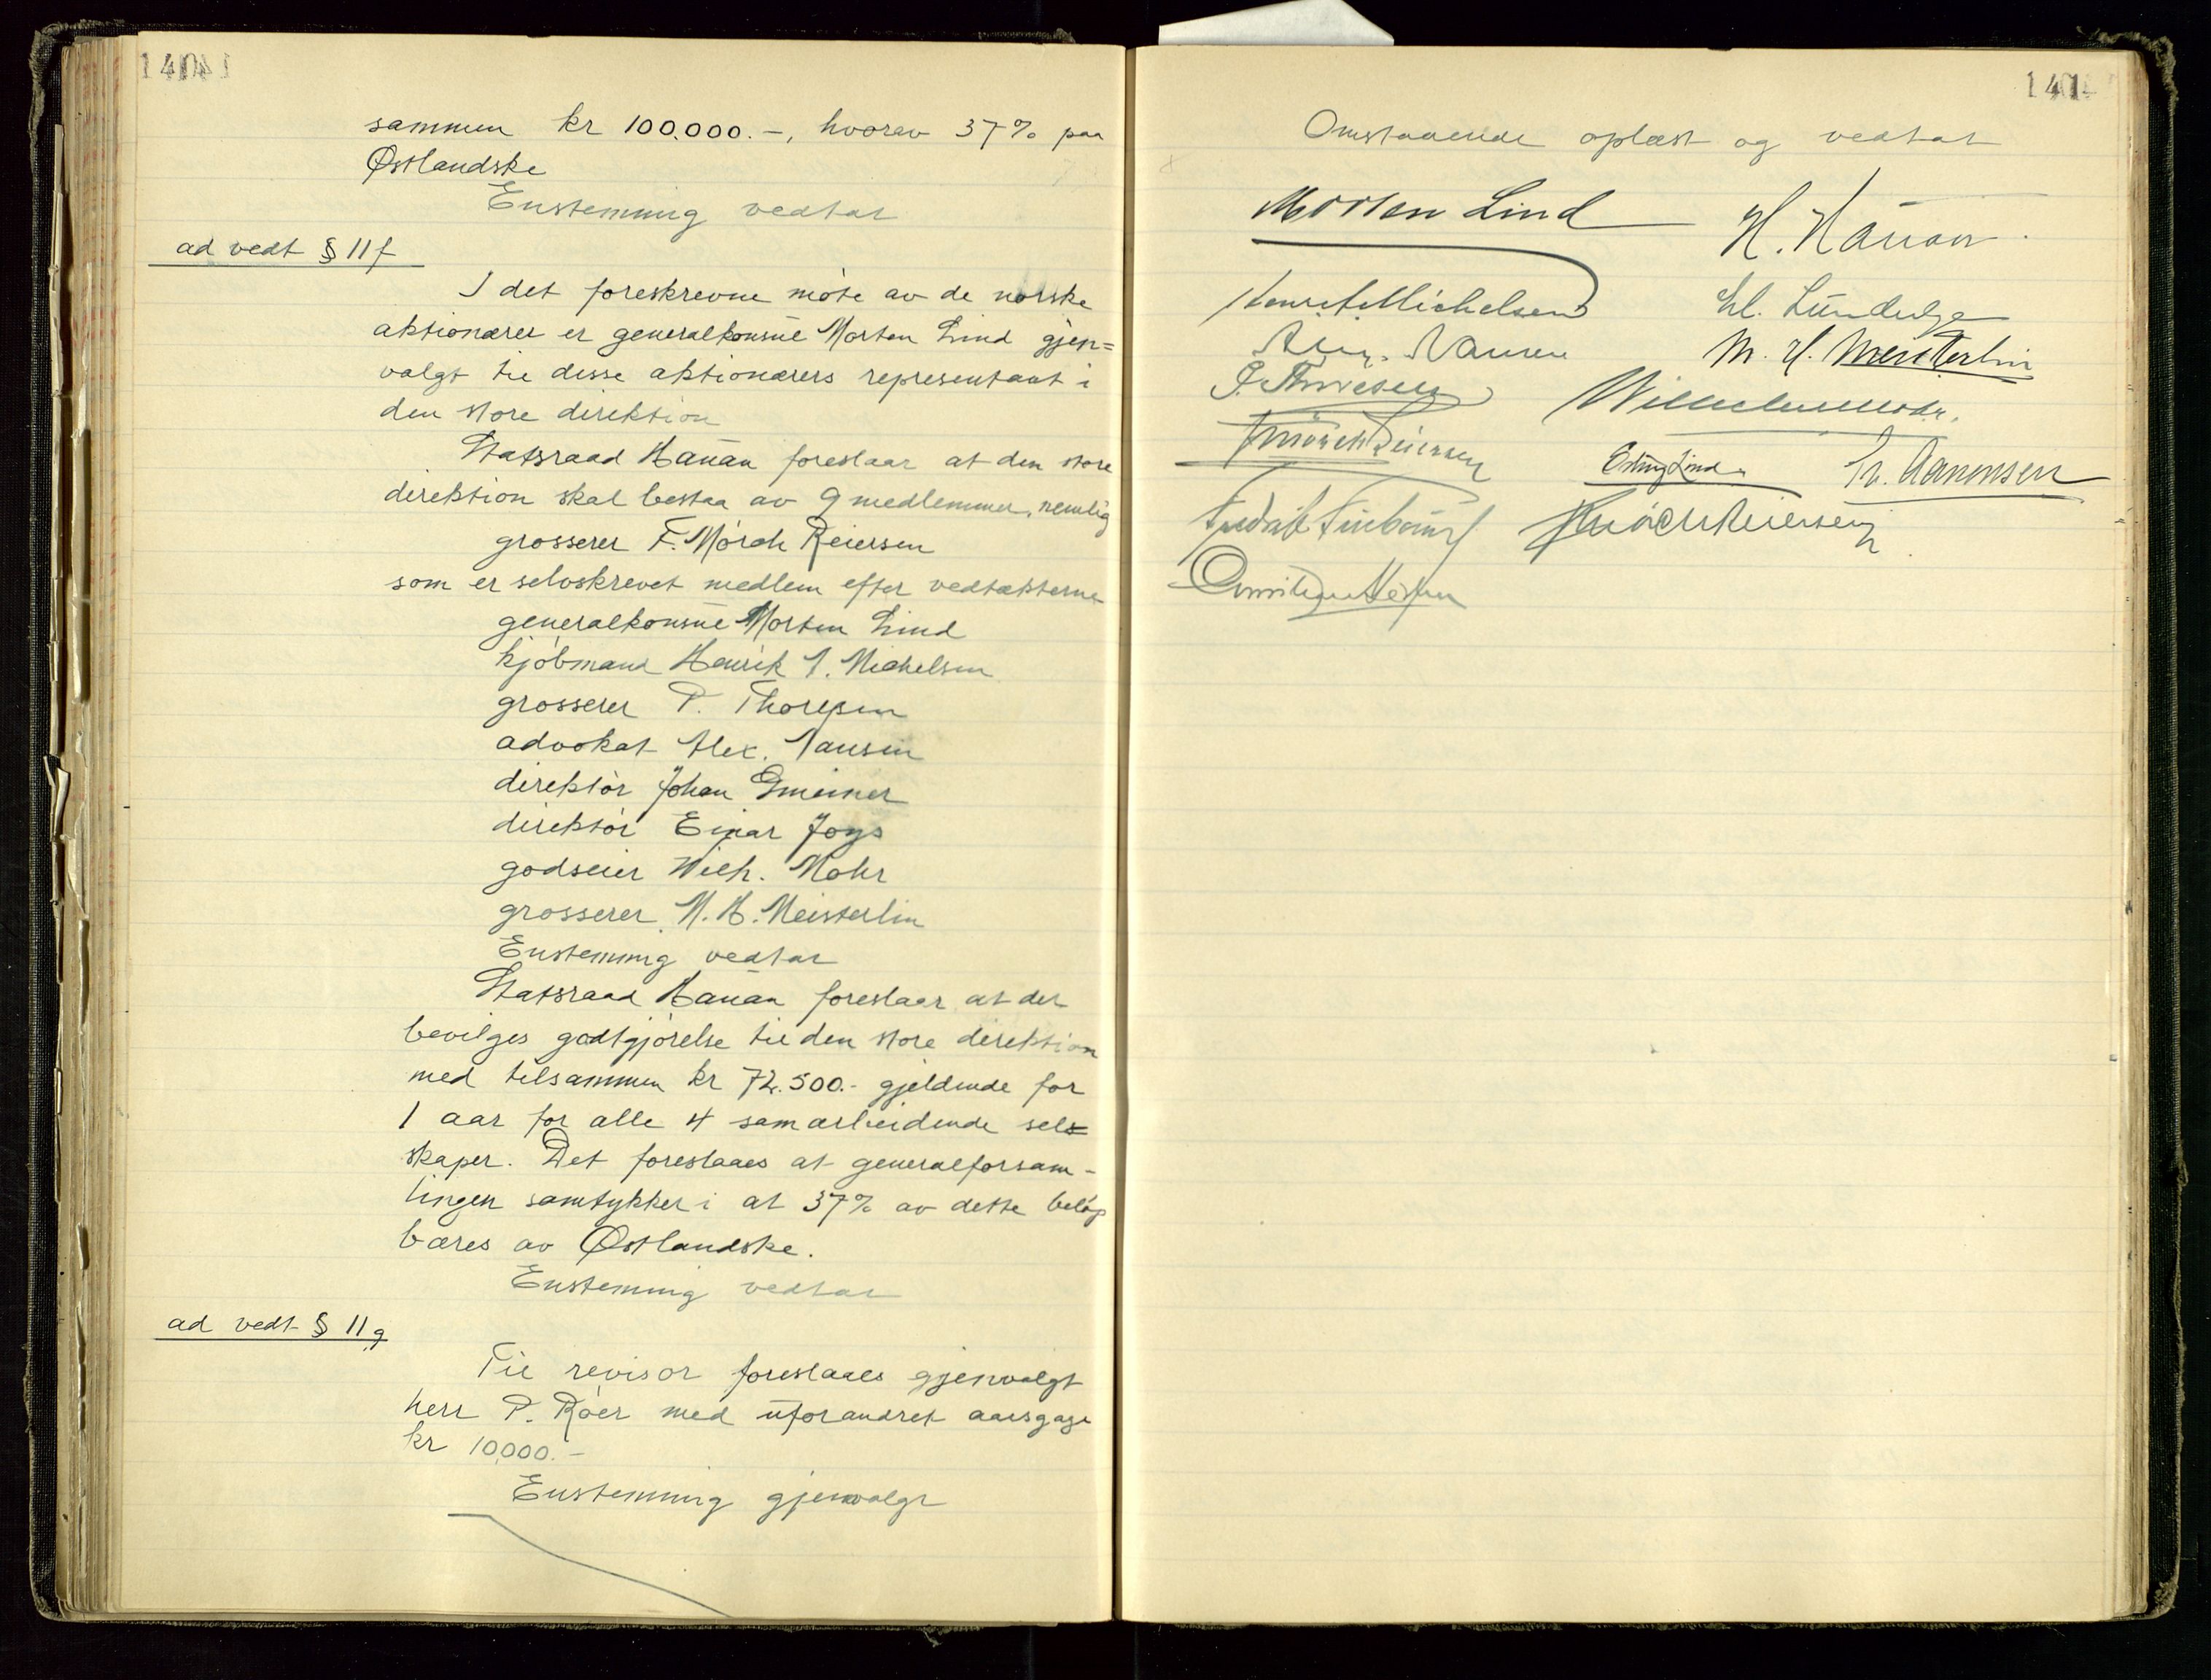 140
sammen kr 100.000.-, hvorav 37% paa
Østlandske
Enstemmig vedtat
ad vedt § 11 f
I det foreskrevne møte av de norske
aktionærer er generalkonsul Morten Lind gjen=
valgt til disse aktionærers representant i
den store direktion
Statsraad Hauan foreslaar at den store
direktion skal bestaa av 9 medlemmer, nemlig
grosserer F. Mørch Reiersen
som er selvskrevet medlem efter vedtækterne
generalkonsul Morten Lind
kjøbmand Henrik J. Michelsen
grosserer P. Thoresen
advokat Alex. Nansen
direktør Johan Gmeiner
direktør Einar Joys
godseier Wilh. Mohr
grosserer M. H. Meisterlin
Enstemmig vedtat
Statsraad Hauan foreslaar at der
bevilges godtgjørelse til den store direktion
med tilsammen kr 72.500.- gjeldende for
1 aar for alle 4 samarbeidende sel=
skaper. Det foreslaaes at generalforsam-
lingen samtykker i at 37% av dette beløp
bæres av Østlandske.
Enstemmig vedtat
ad vedt § 11 g
Til revisor foreslaaes gjenvalgt
herr P. Røer med uforandret aarsgage
kr 10,000.-
Enstemmig gjenvalgt
141
Omstaaende oplæst og vedtat
Morten Lind H. Hauan
Michelsen
Alex. Nansen M. H. Meisterlin
P. Thoresen Wilhelm Mohr.
F Mørch Reiersen Erling Lind Aanonsen
Mørch Reiersen